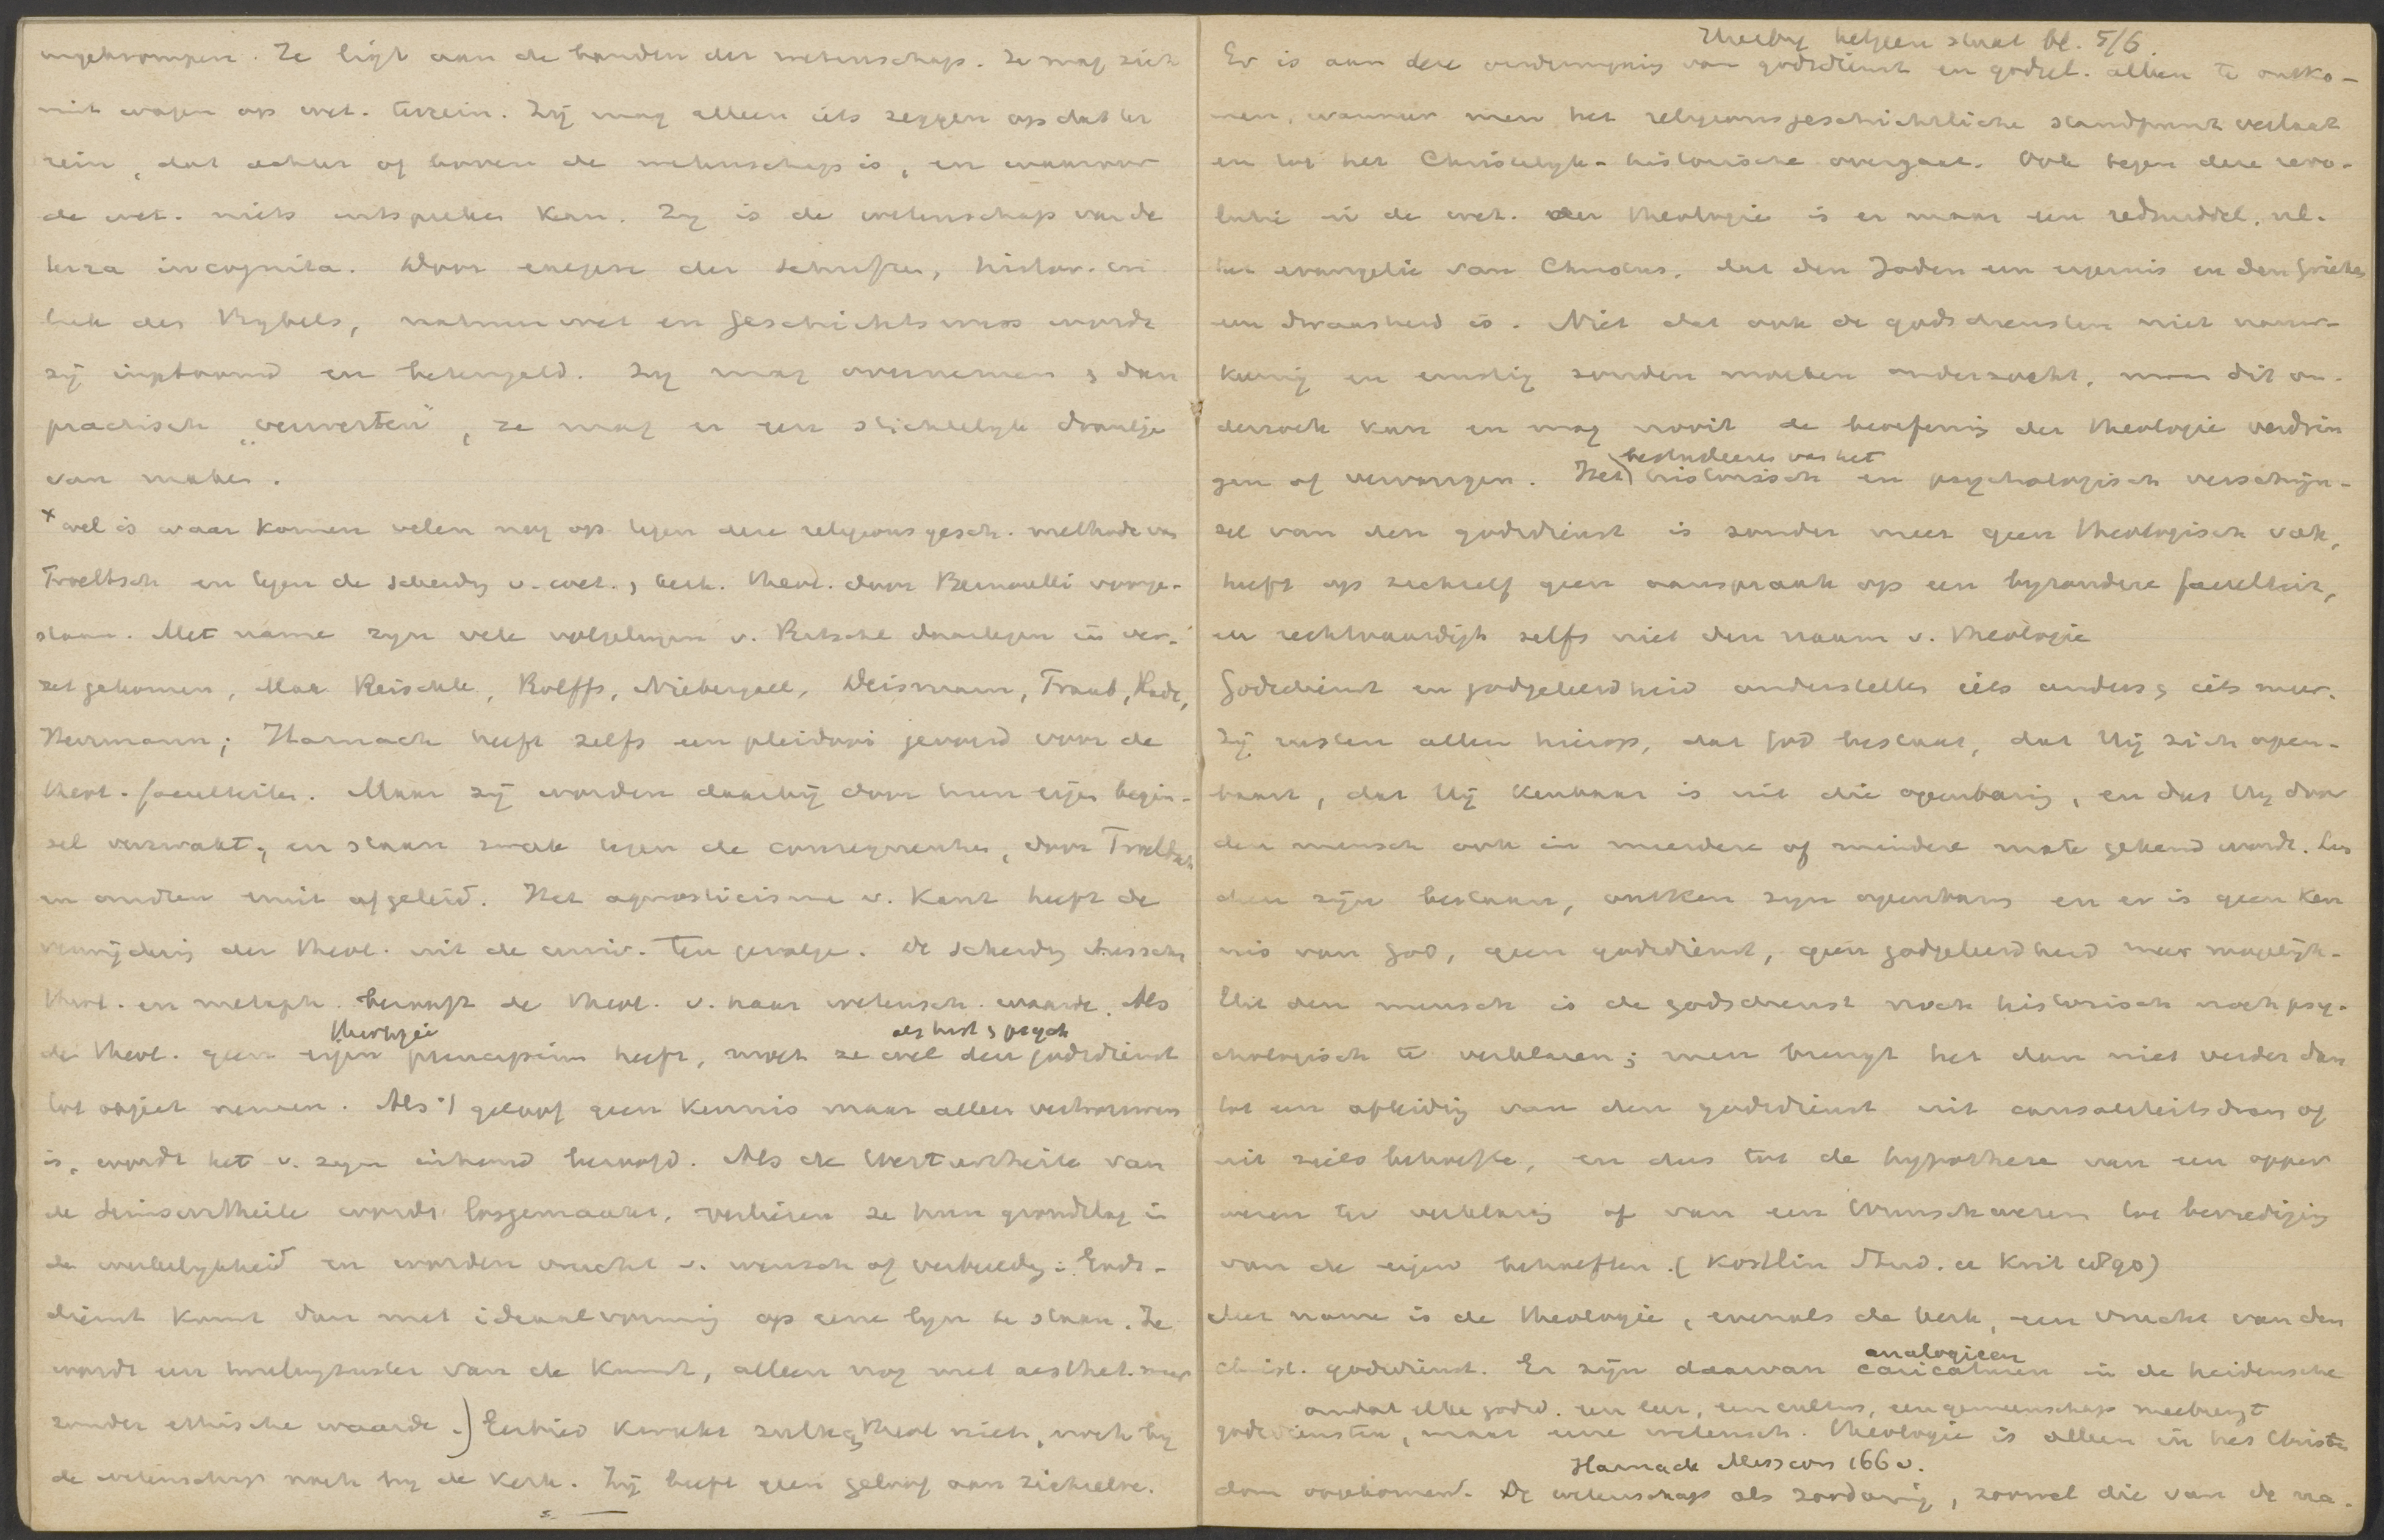 ingekrompen. Ze ligt aan de banden der wetenschap. Ze mag zich
niet wagen op wet. terrein. Zij mag alleen iets zeggen op dat ter
rein, dat achter of boven de wetenschap is, en waarover
de wet. niets uitspreken kan. Zij is de wetenschap van de
terra incognita. Door exegese der Schriften, histor. cri
tiek des Bybels, natuurwet en Geschichtswiss wordt
zij ingetoomd en beteugeld. Zij mag overnemen & dan
practisch „verwerten", ze mag er een stichtelyk draaitje
van maken.
x wel is waar komen velen nog op tegen deze religionsgesch. methode van
Troeltsch en tegen de scheidg v. wet. & kerk. theol. door Bernoulli voorge-
staan. Met name zyn vele volgelingen v. Ritschl daartegen in ver-
zet gekomen, Max Reischle, Rolffs, Niebergall, Deismann, Traub, Rade,
Herrmann; Harnack heeft zelfs een pleidooi gevoerd voor de
theol. faculteiten. Maar zij worden daarbij door hun eigen begin-
sel verzwakt, en staan zwak tegen de consequenties, door Troeltsch
en anderen eruit afgeleid. Het agnosticisme v. Kant heeft de
verwijdering der theol. uit de univ. ten gevolge. De scheidg tusschen
theol. en metaph. berooft de theol. v. haar wetensch. waarde. Als
theologie als hist & psych
de theol. geen eigen principium heeft, moet ze wel den godsdienst
tot object nemen. Als 't geloof geen kennis maar alleen vertrouwen
is, wordt het v. zyn inhoud beroofd. Als de Werturtheile van
de Seinsurtheile wordt losgemaakt, verliezen ze hun grondslag in
de werkelykheid en worden vrucht v. wensch of verbeeldg. Gods-
dienst komt dan met ideaalvorming op eene lyn te staan. Ze
wordt een tweelingzuster van de kunst, alleen nog met aesthet. maar
zonder ethische waarde.) Eerbied kweekt zulke theol niet, noch by
de wetenschap noch by de kerk. Zij heeft geen geloof aan zichzelve.
Hierby hetgeen staat bl. 5/6.
Er is aan deze verdringing van godsdienst en godgel. alleen te ontko-
men, wanneer men het religionsgeschichtliche standpunt verlaat
en tot het Christelyk-historische overgaat. Ook tegen deze revo-
lutie in de wet. der theologie is er maar een redmiddel, nl.
het evangelie van Christus, dat den Joden een ergernis en den Grieken
een dwaasheid is. Niet dat ook de godsdiensten niet nauw-
keurig en ernstig zouden moeten onderzocht, maar dit on-
derzoek kan en mag nooit de beoefening der theologie verdrin
bestudeeren van het
gen of vervangen. Het historisch en psychologisch verschijn-
sel van den godsdienst is zonder meer geen theologisch vak,
heeft op zichzelf geen aanspraak op een byzondere faculteit,
en rechtvaardigt zelfs niet den naam v. theologie
Godsdienst en godgeleerdheid onderstellen iets anders & iets meer.
Zij rusten alleen hierop, dat God bestaat, dat Hij zich open-
baart, dat Hij kenbaar is uit die openbaring, en dus Hy door
den mensch ook in meerdere of mindere mate gekend wordt. Loo
chen zijn bestaan, ontken zyn openbaring en er is geen ken
nis van God, geen godsdienst, geen godgeleerdheid meer mogelijk.
Uit den mensch is de godsdienst noch historisch noch psy-
chologisch te verklaren; men brengt het dan niet verder dan
tot een afleiding van den godsdienst uit causaliteitsdrang of
uit zielsbehoefte, en dus tot de hypothese van een opper
wezen ter verklaring of van een Wunschwesen tot bevrediging
van de eigen behoeften. (Kostlin Stud. u Krit 1890)
Met name is de theologie, evenals de kerk, een vrucht van den
analogieen
Christ. godsdienst. Er zijn daarvan caricaturen in de heidensche
omdat elke godsd. een leer, een cultus, een gemeenschap meebrengt
godsdiensten, maar eene wetensch. theologie is alleen in het Christen
Harnack Mission 166 v.
dom opgekomen. De wetenschap als zoodanig, zoowel die van de na-